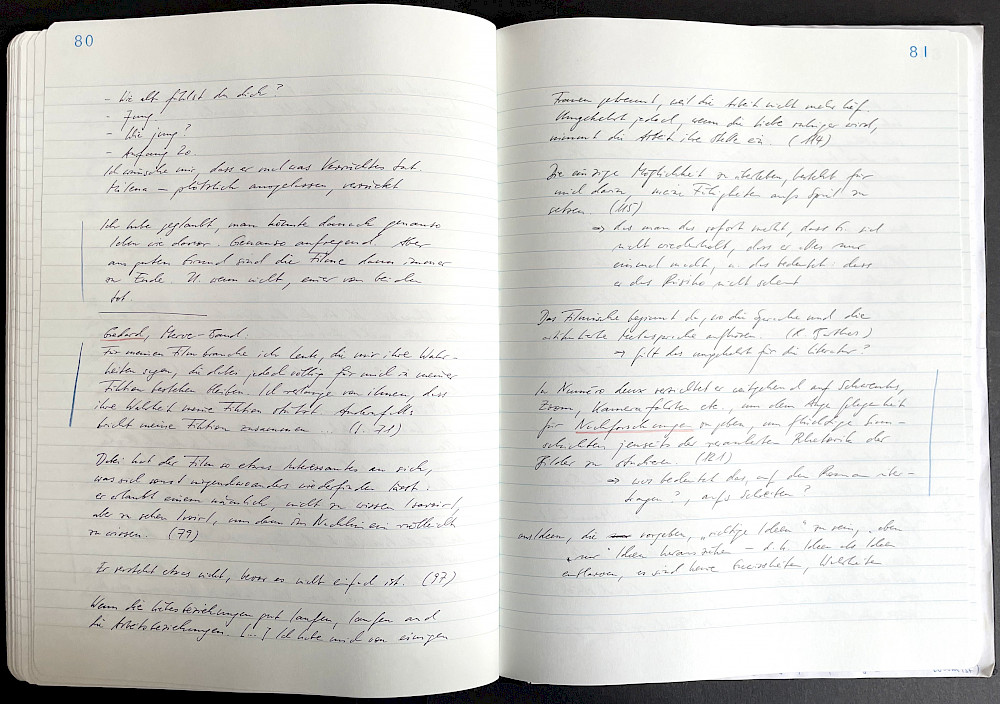 80
- Wie alt fühlst du dich?
- Jung
- Wie jung?
- Anfang 20
Ich wünsche mir, dass er mal was Verrücktes tut.
– plötzlich ausgelassen, verrückt
Ich habe geglaubt, man könnte danach genauso
leben wie davor. Genauso aufregend. Aber
aus gutem Grund sind die Filme dann immer
zu Ende. U. wenn nicht, einer von beiden
tot.
Godard, Merve-Band:
Für meinen Film brauche ich Leute, die mir ihre Wahr-
heiten sagen, die dabei jedoch völlig für mich in meiner
Fiktion bestehen bleiben. Ich verlange von ihnen, dass
ihre Wahrheit meine Fiktion stützt. Andernfalls
bricht meine Fiktion zusammen ... (S. 71)
Dabei hat der Film so etwas Interessantes an sich,
was sich sonst nirgendwo anders wiederfinden lässt:
er erlaubt einem nämlich, nicht zu wissen
aber zu sehen, um dann im Nachhinein vielleicht
zu wissen. (79)
Er versteht etwas nicht, bevor es nicht einfach ist. (97)
Wenn die Liebesbeziehungen gut laufen, laufen auch
die Arbeitsbeziehungen. [...] Ich habe mich von einigen
81
Frauen getrennt, weil die Arbeit nicht mehr lief.
Umgekehrt jedoch, wenn die Liebe ruhiger wird,
nimmt die Arbeit ihre Stelle ein. (114)
Die einzige Möglichkeit zu überleben, besteht für
mich darin, meine Fähigkeiten aufs Spiel zu
setzen. (115)
⇒ das man das sofort merkt, dass er sich
nicht wiederholt, dass er alles nur
einmal macht, u. das bedeutet: dass
er das Risiko nicht scheut
Das Filmische beginnt da, wo die Sprache und die
Metasprache aufhören (R. Barthes)
→ gilt das umgekehrt für die Literatur?
In Numéro deux verzichtet er weitgehend auf Schwenks,
Zoom, Kamerafahrten etc., um dem Auge Gelegenheit
für Nachforschungen zu geben, um flüchtige Sinn-
schichten jenseits der Rhetorik der
Bilder zu studieren. (121)
⇒ was bedeutet das, auf den Roman über-
tragen?, aufs Schreiben?
aus Ideen, die vorgeben, „richtige Ideen" zu sein, eben
„nur" Ideen herausziehen – d.h. Ideen als Ideen
entlassen, es sind keine Gewissheiten, Wahrheiten